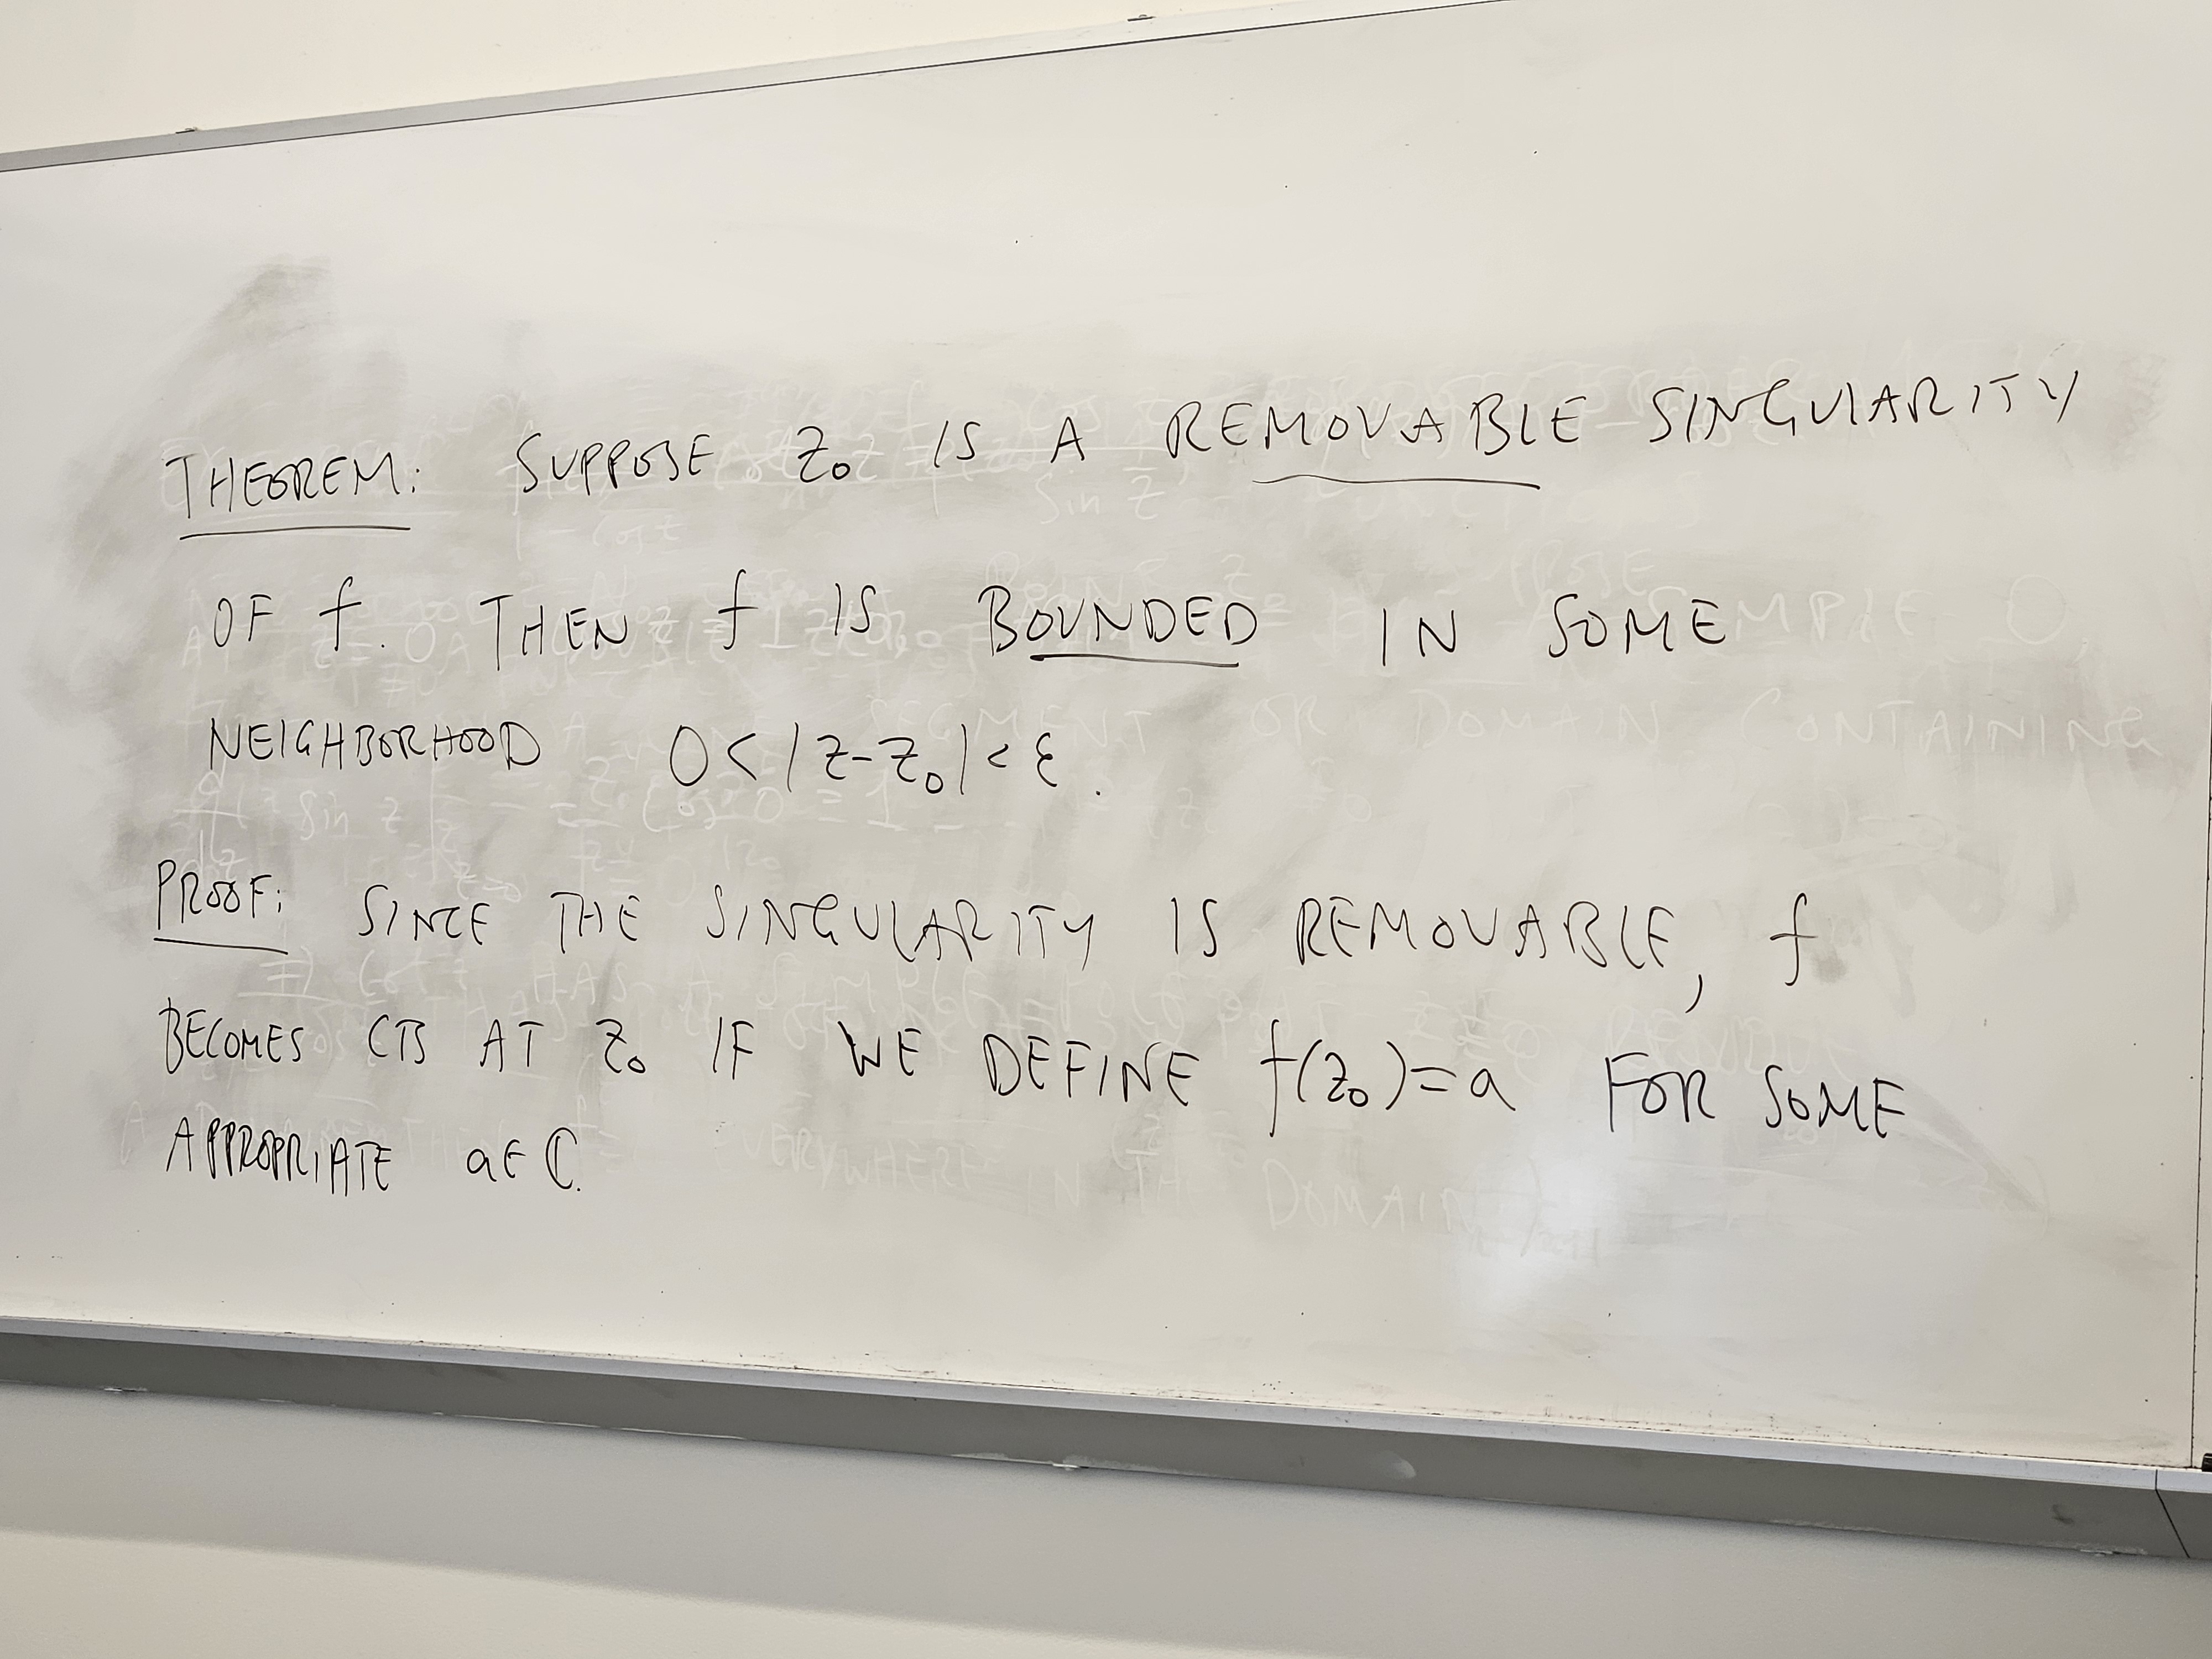 THEOREM: SUPPOSE z₀ IS A REMOVABLE SINGULARITY
OF f. THEN f IS BOUNDED IN SOME
NEIGHBORHOOD 0<|z-z₀|<ε.
PROOF: SINCE THE SINGULARITY IS REMOVABLE, f
BECOMES CTS AT z₀ IF WE DEFINE f(z₀)=a FOR SOME
APPROPRIATE a∈ℂ.